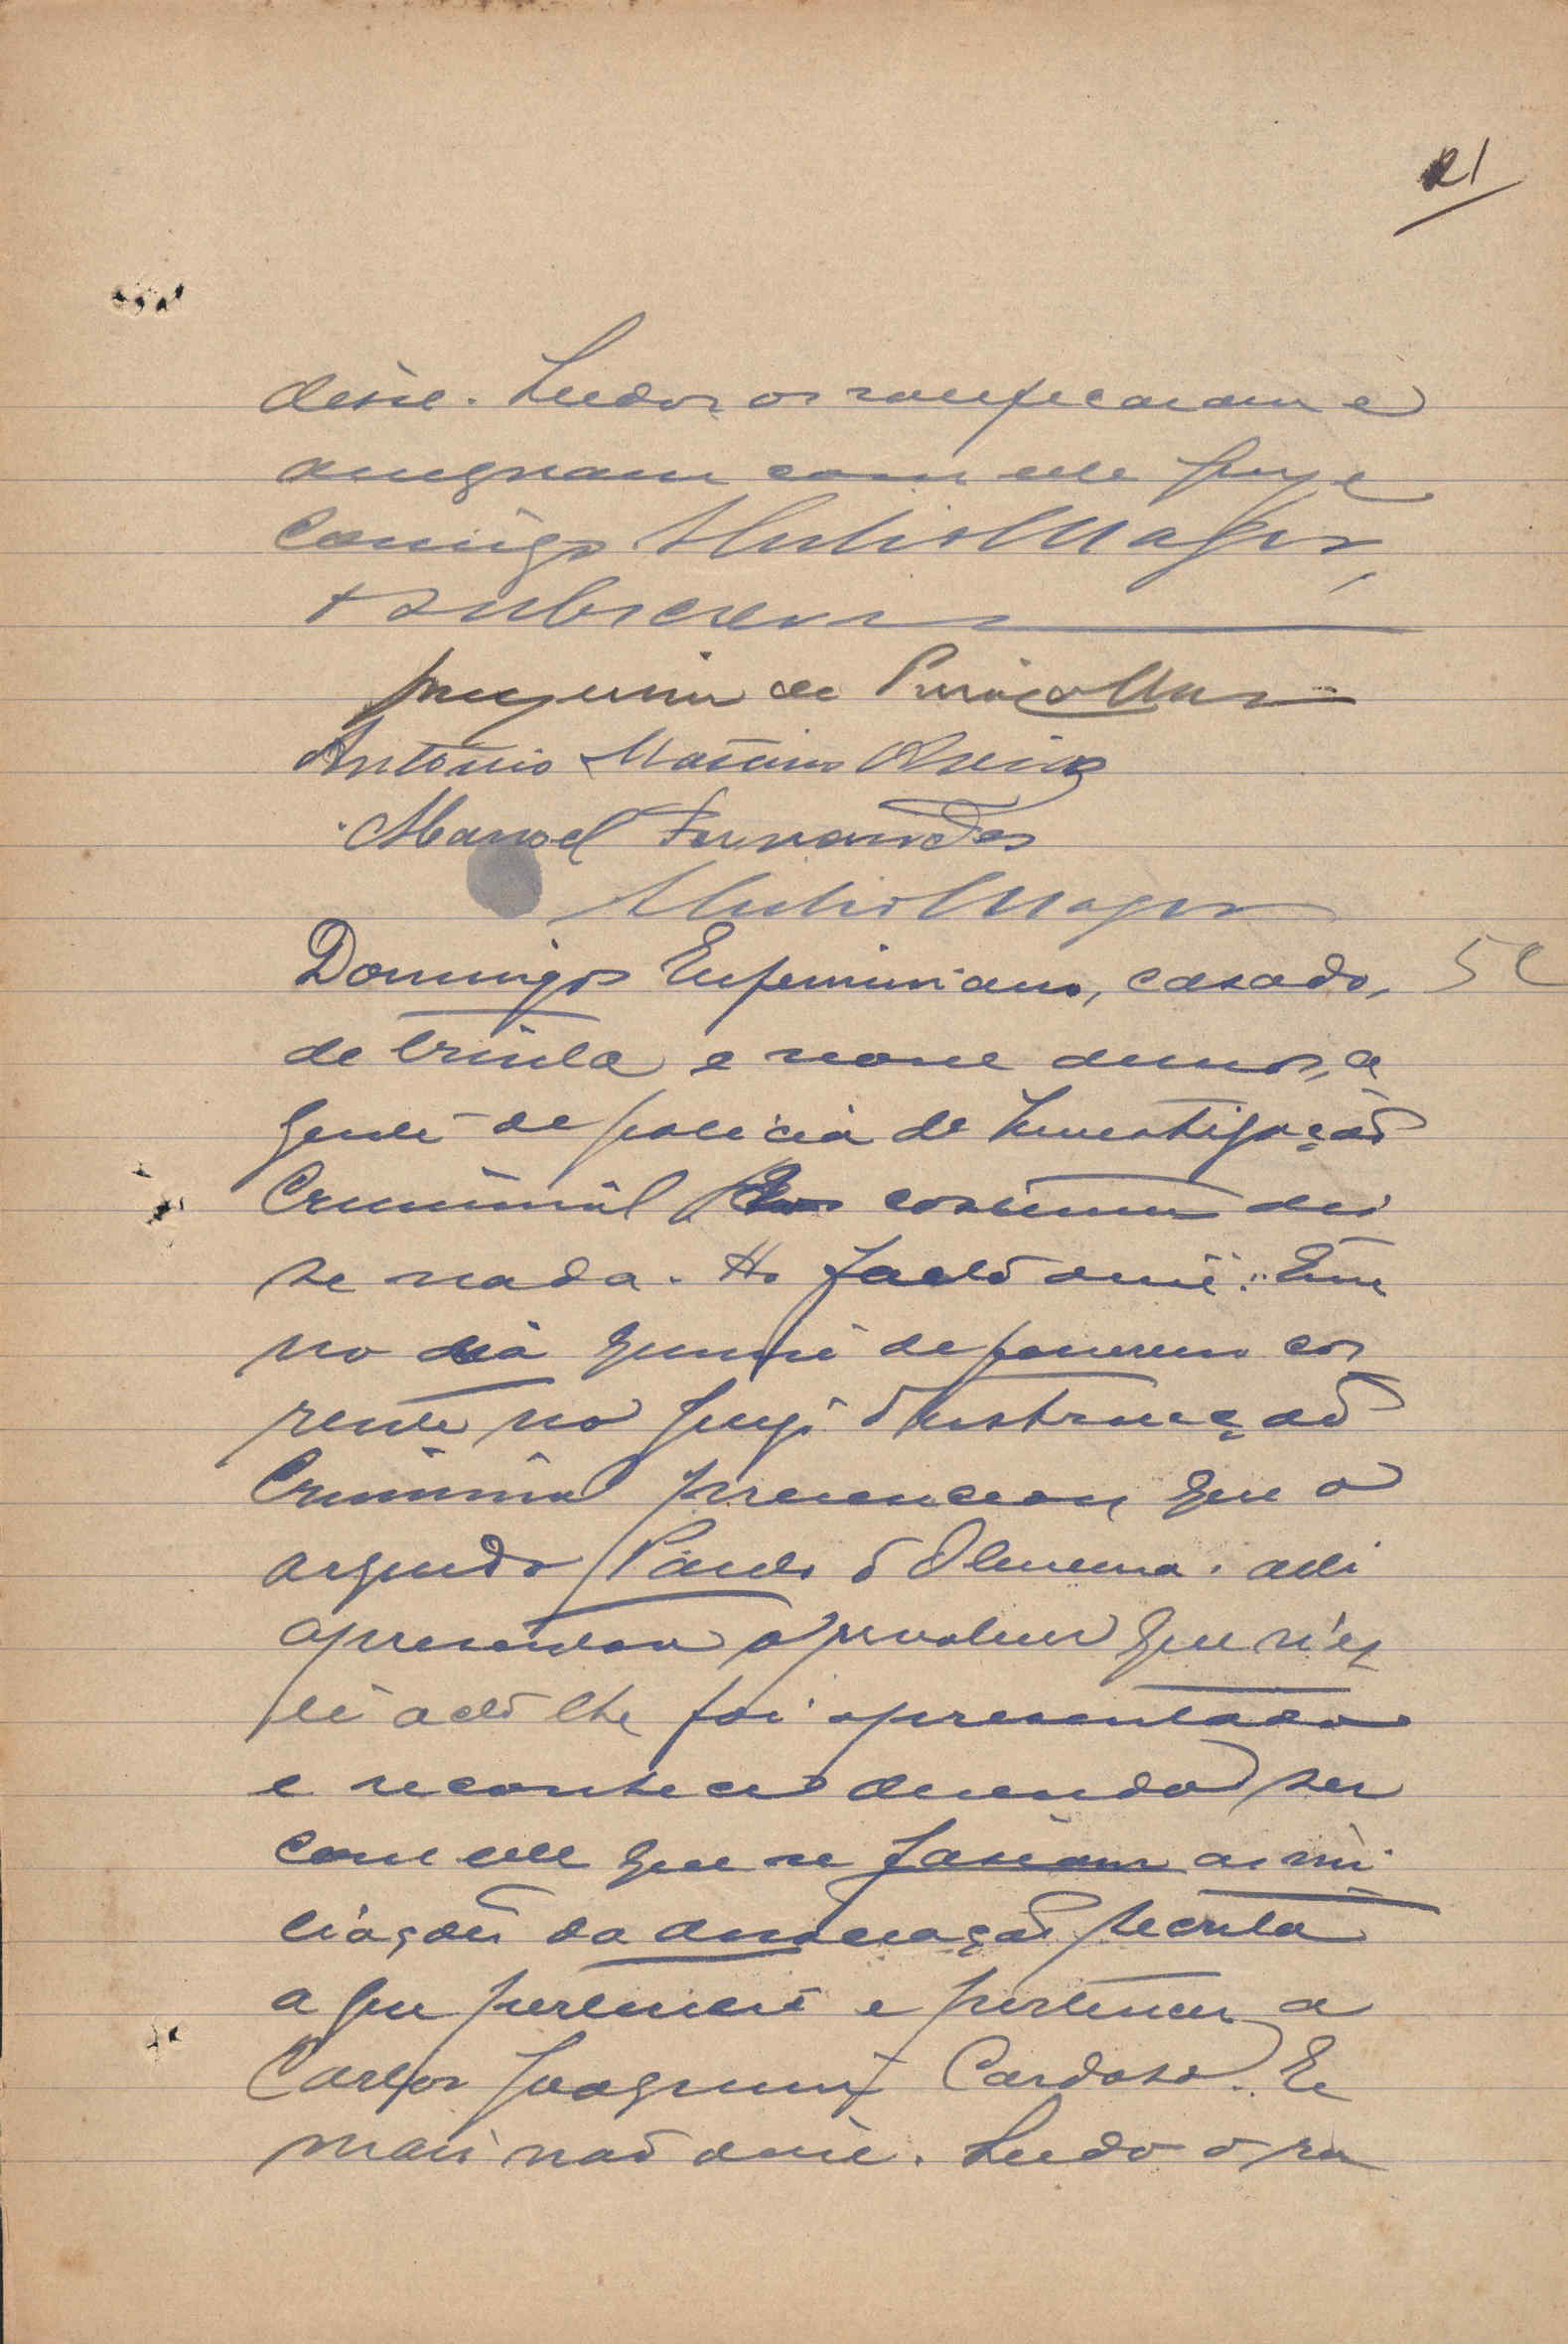 21
disse. Lidos os ratificaram e
assignam com elle juiz e
comigo
e subscrevi
Antonio
Manoel Fernandes
Domingos Eufeminiano, casado, 5
de trinta e nove annos, a
gente de policia de Investigação
Criminal costumes dis
se nada. Ao facto disse: Em
no dia quinze de Janeiro cor
rente no juizo d'Instrucção
Criminal presenceou que o
arguido Paulo d' ali
apresentou o revolver que n'es
te acto lhe foi apresentado
e reconheceu dizendo ser
com elle que se fasiam as ini
ciações da associação secreta
a que pertencia e pertencer a
Carlos Joaquim Cardoso. E
mais não disse. Lido o ra